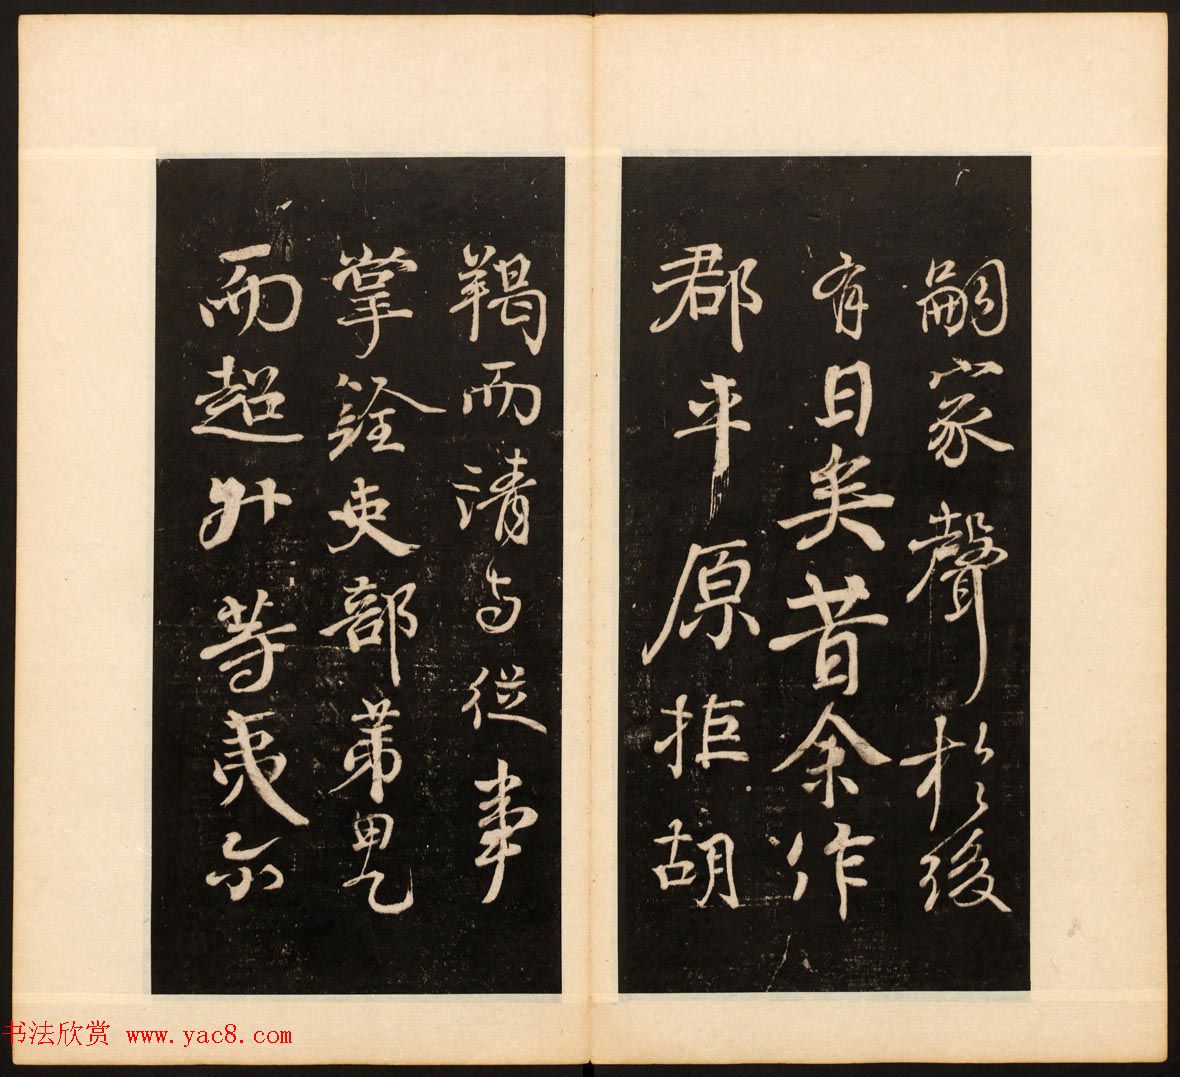 嗣家聲扵後
有日矣昔余作
郡平原拒胡
羯而清与從事
掌銓吏部苐甲乙
而超升等夷尓
书法欣赏 www.yac8.com